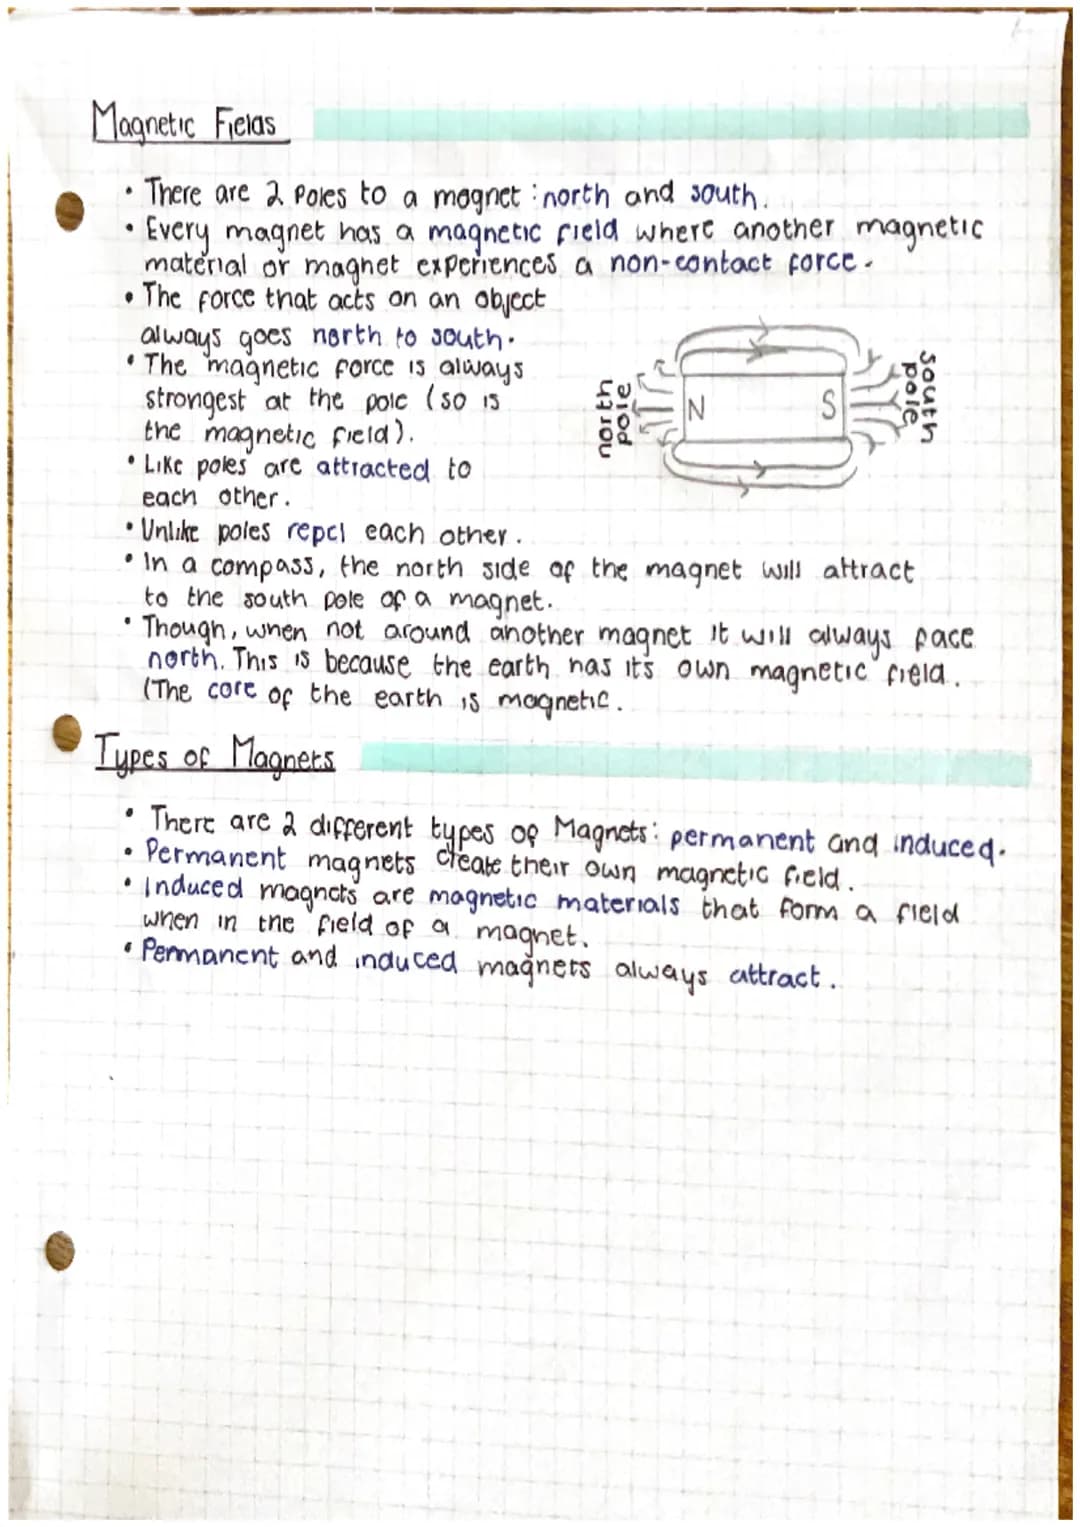 Magnetic Fields
• There are 2 Poles to a magnet : north and south.
• Every magnet has a magnetic field where another magnetic
material or magnet experiences a non-contact force.
• The force that acts on an object
always goes north to south.
• The magnetic force is always
strongest at the pole (so is
the magnetic field).
• Like poles are attracted to
each other.
• Unlike poles repel each other.
• In a compass, the north side of the magnet will attract
to the south pole of a magnet.
• Though, when not around another magnet it will always face
north. This is because the earth has its own magnetic field.
(The core of the earth is magnetic.
north
pole
N
S
south
pole
Types of Magnets
• There are 2 different types of Magnets: permanent and induced.
• Permanent magnets create their own magnetic field.
• Induced magnets are magnetic materials that form a field
when in the field of a magnet.
• Permanent and induced magnets always attract.